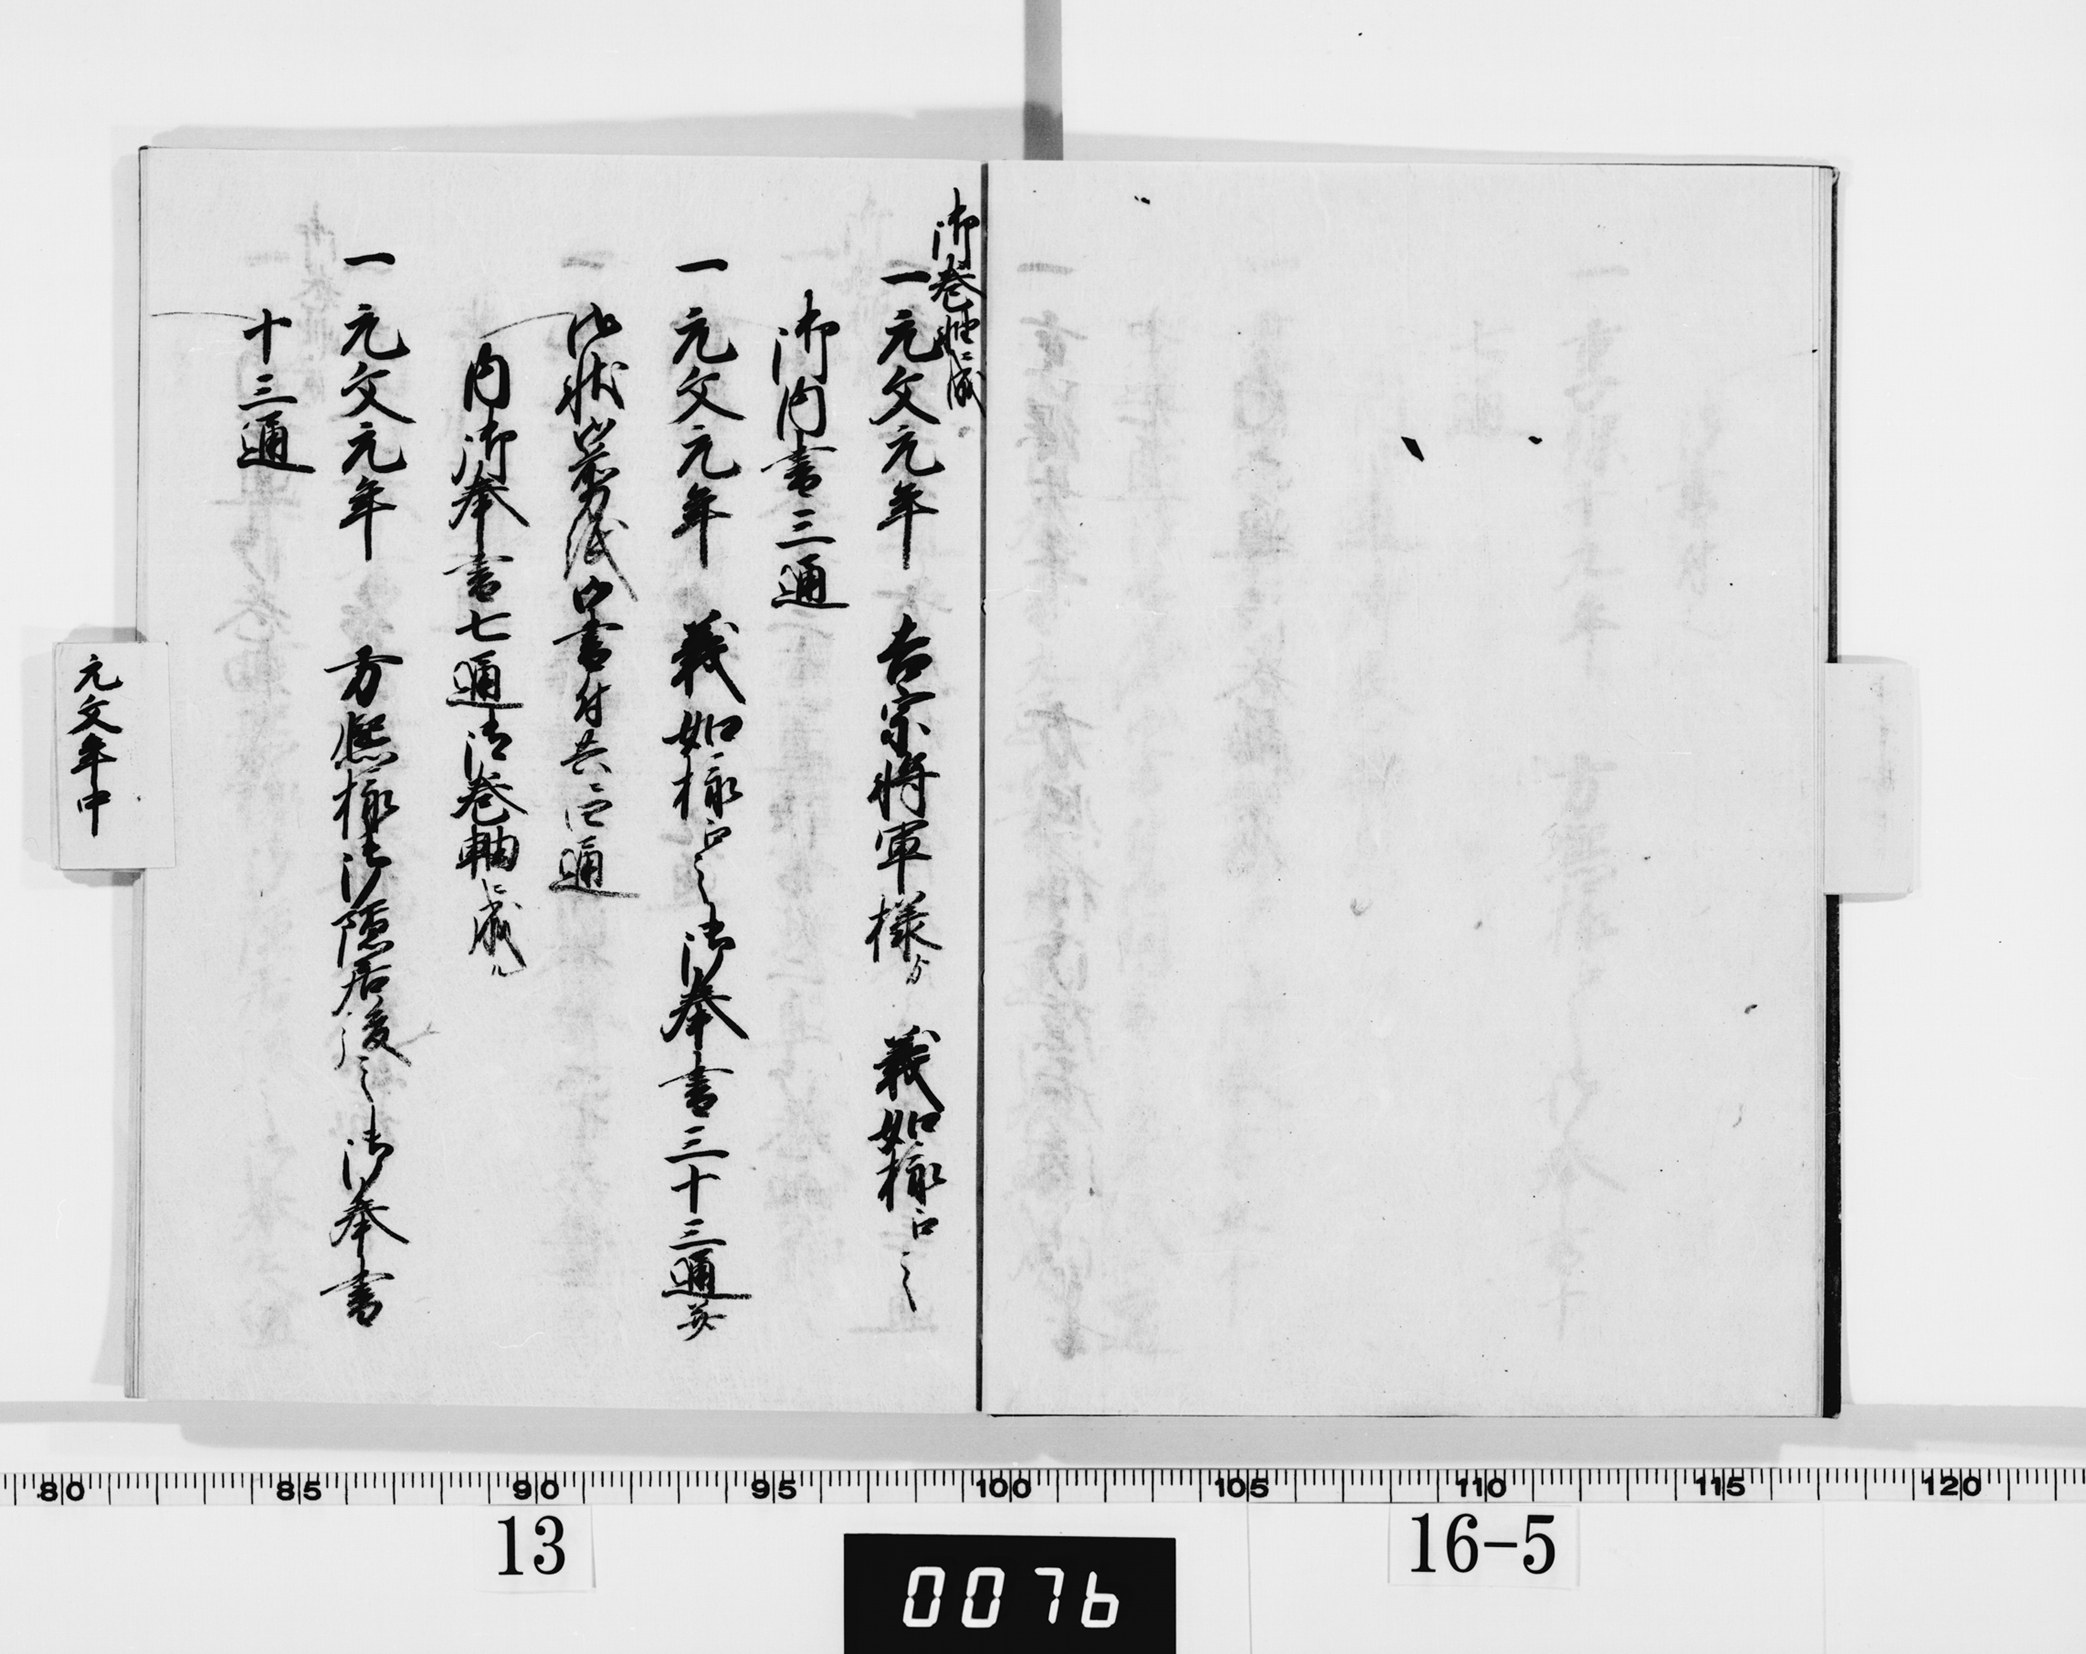 御巻軸ニ成
一元文元年 吉宗将軍様ゟ 義如様江之
御内書三通
一元文元年 義如様江之御奉書三十三通并
御状
御書付共ニ四通
内御奉書七通御巻軸ニ成ル
一元文元年 方熈様御隠居後之御奉書
十三通
元文年中
80 85 90 95 100 105 110 115 120
13
0076
16-5